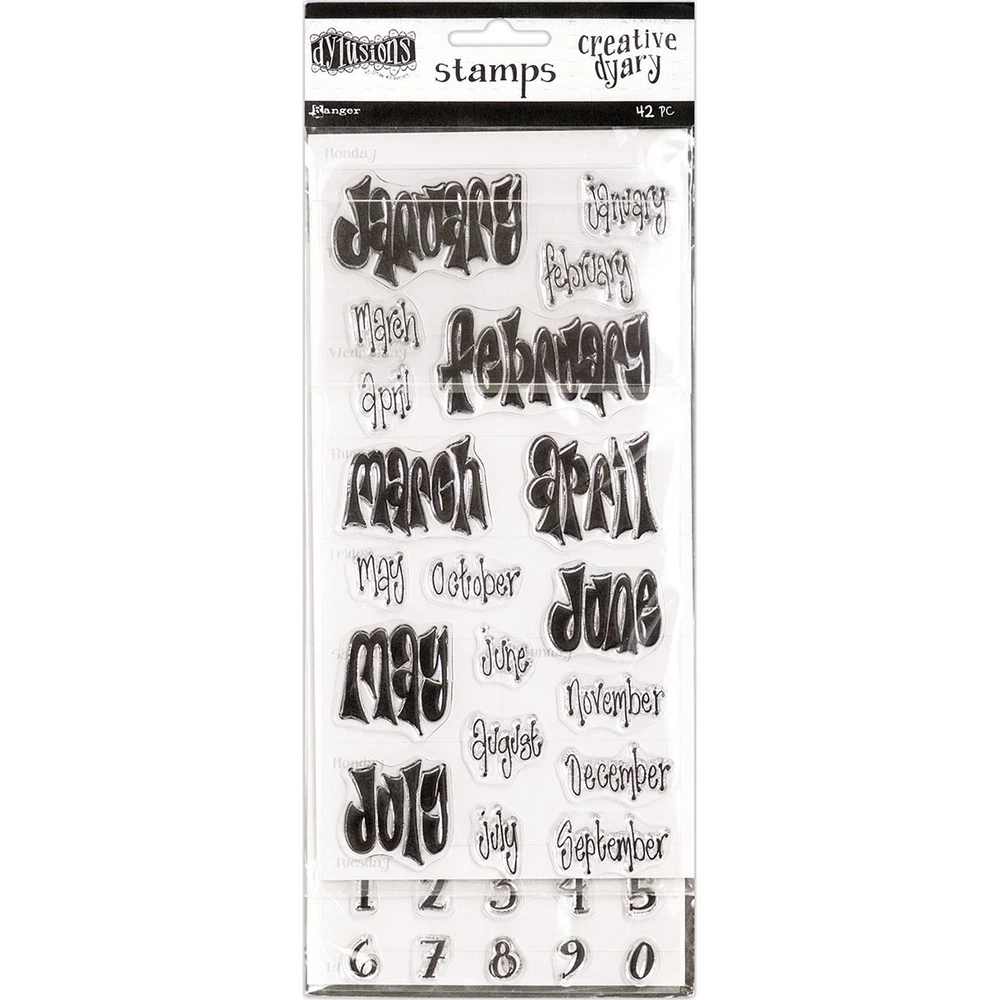 dylusions
stamps
creative
dyary
Ranger
42 PC
Monday
January
january
february
march
Wednesday
february
april
march
april
Friday
may
October
June
may
june
November
august
December
Monday
July
july
September
Tuesday
1 2 3 4 5
6 7 8 9 0